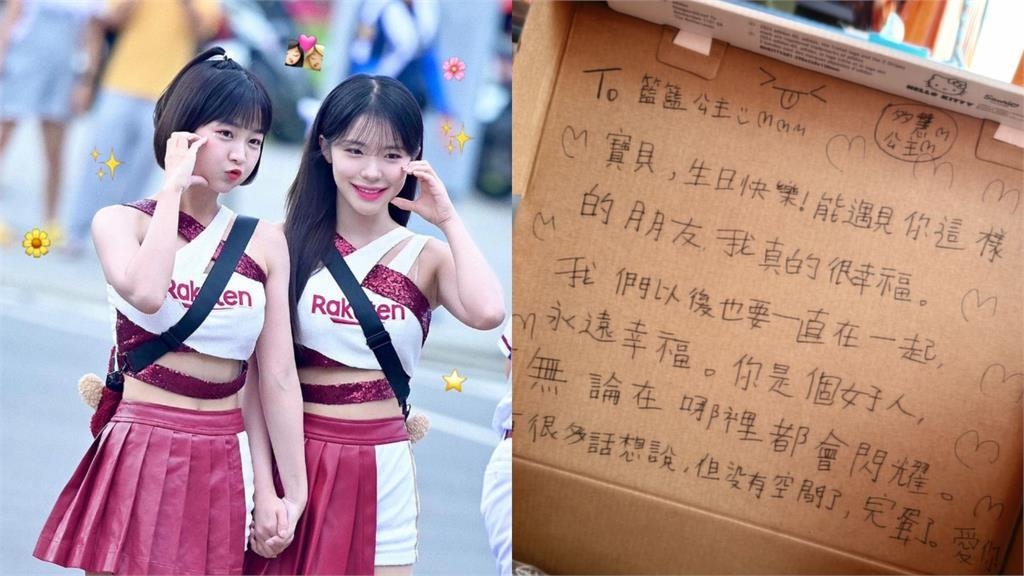 Rakuten
Rakuten
HELLO KITTY
Sanrio
To 籃籃公主
多慧
公主
寶貝，生日快樂！能遇見你這樣
的朋友 我真的很幸福。
我們以後也要一直在一起，
永遠幸福。你是個好人，
無論在哪裡都會閃耀。
很多話想說，但没有空間了，完蛋了。愛你